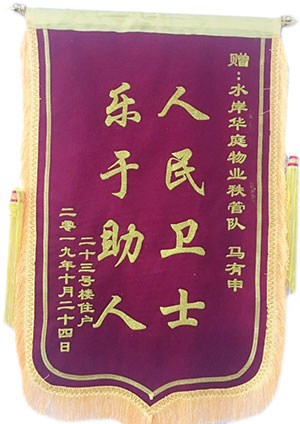 赠：水岸华庭物业秩管队 马有申
人民卫士
乐于助人
二十三号楼住户
二零一九年十月二十四日